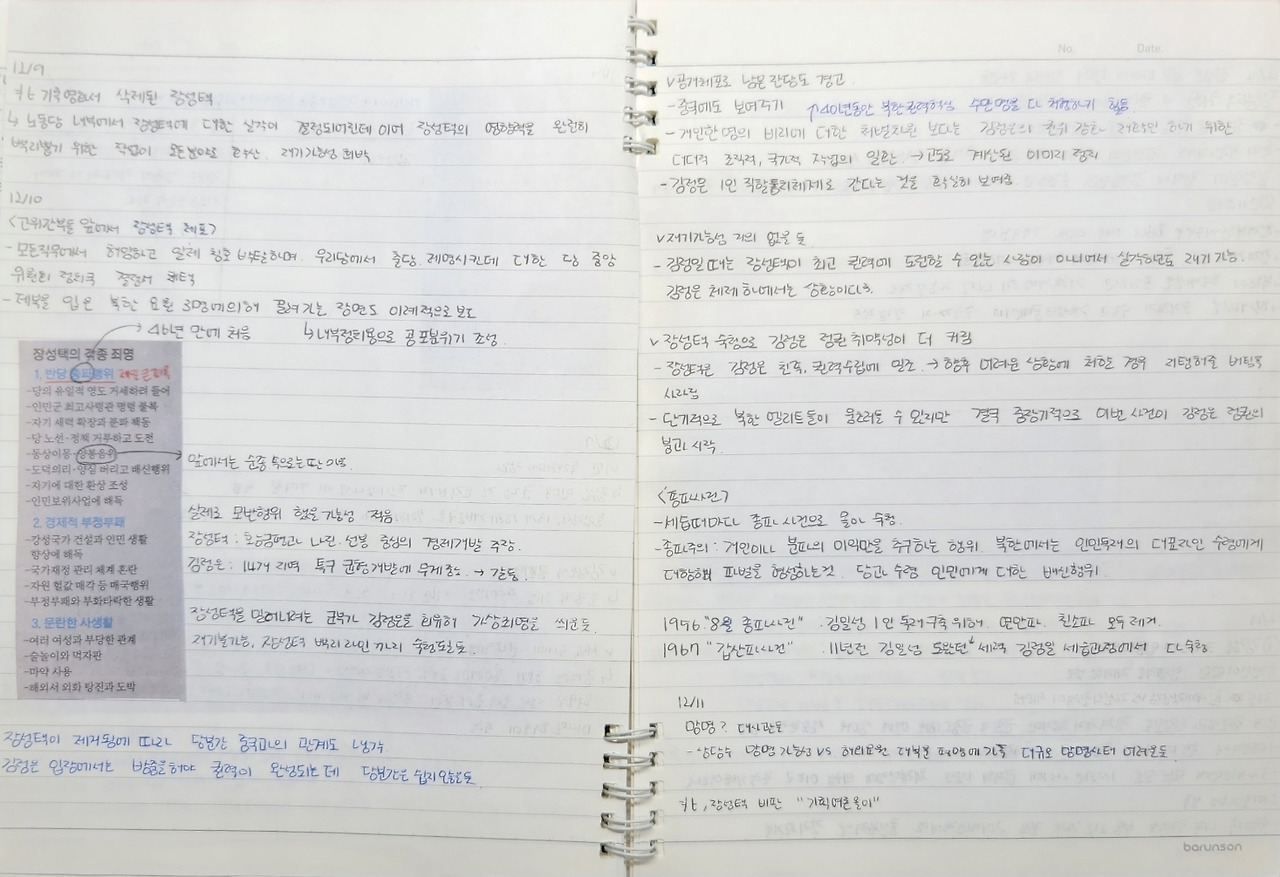 12/9
北 기록영화서 삭제된 장성택
↳ 노동당 내부에서 장성택에 대한 실각이 결정되어진데 이어 장성택의 영향력을 완전히
뿌리뽑기 위한 작업이 전분야로 확산. 재기가능성 희박
12/10
<고위간부들 앞에서 장성택 체포>
- 모든직무에서 해임하고 일체 칭호 박탈하며, 우리당에서 출당, 제명시킨데 대한 당 중앙
위원회 정치국 결정서 채택
- 제복을 입은 북한 요원 3명에의해 끌려가는 장면도 이례적으로 보도
→ 46년 만에 처음
↳ 내부정치용으로 공포분위기 조성.
장성택의 각종 죄명
1. 반당 종파행위
-당의 유일적 영도 거세하려 들어
-인민군 최고사령관 명령 불복
-자기 세력 확장과 분파 책동
-당 노선·정책 거부하고 도전
-동상이몽·양봉음위
-도덕의리·양심 버리고 배신행위
-자기에 대한 환상 조성
-인민보위사업에 해독
앞에서는 순종 속으로는 딴 마음
2. 경제적 부정부패
-강성국가 건설과 인민 생활
향상에 해독
-국가재정 관리 체계 혼란
-자원 헐값 매각 등 매국행위
-부정부패와 부화타락한 생활
실제로 모반행위 했을 가능성 적음
장성택 : 황금평과 나진·선봉 중심의 경제개발 주장.
김정은 : 14개 지역 특구 균형개발에 무게중심. → 갈등.
3. 문란한 사생활
-여러 여성과 부당한 관계
-술놀이와 먹자판
-마약 사용
-해외서 외화 탕진과 도박
장성택을 밀어내려는 군부가 김정은을 회유해 가상죄명을 씌운듯.
재기불가능, 장성택 뿌리 라인까지 숙청될듯
장성택이 제거됨에 따라 당분간 중국과의 관계도 냉각
김정은 입장에서는 방중을해야 권력이 완성되는데 당분간은 쉽지않을듯.
No. Date.
∨공개체포로 남은 잔당도 경고.
- 중국에도 보여주기
↑40년동안 북한권력핵심 수만명을 다 처형하기 힘듦
- 개인한명의 비리에 대한 처벌차원 보다는 김정은의 권위 강화 재확인 하기 위한
대대적 조직적, 국가적 작업의 일환. → 고도로 계산된 이미지 정치
- 김정은 1인 직할통치체제로 간다는 것을 확실히 보여줌.
∨재기가능성 거의 없을 듯.
- 김정일 때는 장성택이 최고 권력에 도전할 수 있는 사람이 아니어서 실각하면도 재기 가능.
김정은 체제 하에서는 상황이다름.
∨ 장성택 숙청으로 김정은 정권 취약성이 더 커짐
- 장성택은 김정은 친족, 권력수립에 일조. → 향후 어려운 상황에 처할 경우 지탱해줄 버팀목
사라짐
- 단기적으로 북한 엘리트들이 움츠려들 수 있지만 결국 중장기적으로 이번 사건이 김정은 정권의
붕괴 시작
<종파사건>
- 세습때마다 종파 사건으로 몰아 숙청.
- 종파주의 : 개인이나 분파의 이익만을 추구하는 행위. 북한에서는 인민독재의 대표자인 수령에게
대항해 파벌을 형성하는것. 당과 수령 인민에게 대한 배신행위.
1956 "8월 종파사건" . 김일성 1인 독재구축 위해. 연안파. 친소파 모두 제거.
1967 "갑산파사건" . 11년전 김일성 도왔던 세력 김정일 세습과정에서 다 숙청
12/11
망명? 대사관들
- 상당수 망명 가능성 VS 해외요원 대부분 평양에 가족 대규모 망명사태 어려울듯
北, 장성택 비판 "기획여론몰이"
barunson